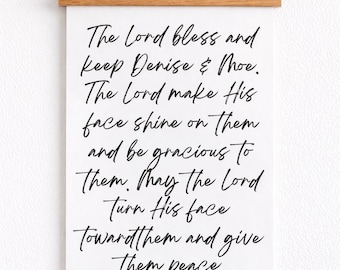 The Lord bless and
keep Denise & Moe.
The Lord make His
face shine on them
and be gracious to
them. May the Lord
turn His face
towardthem and give
them peace